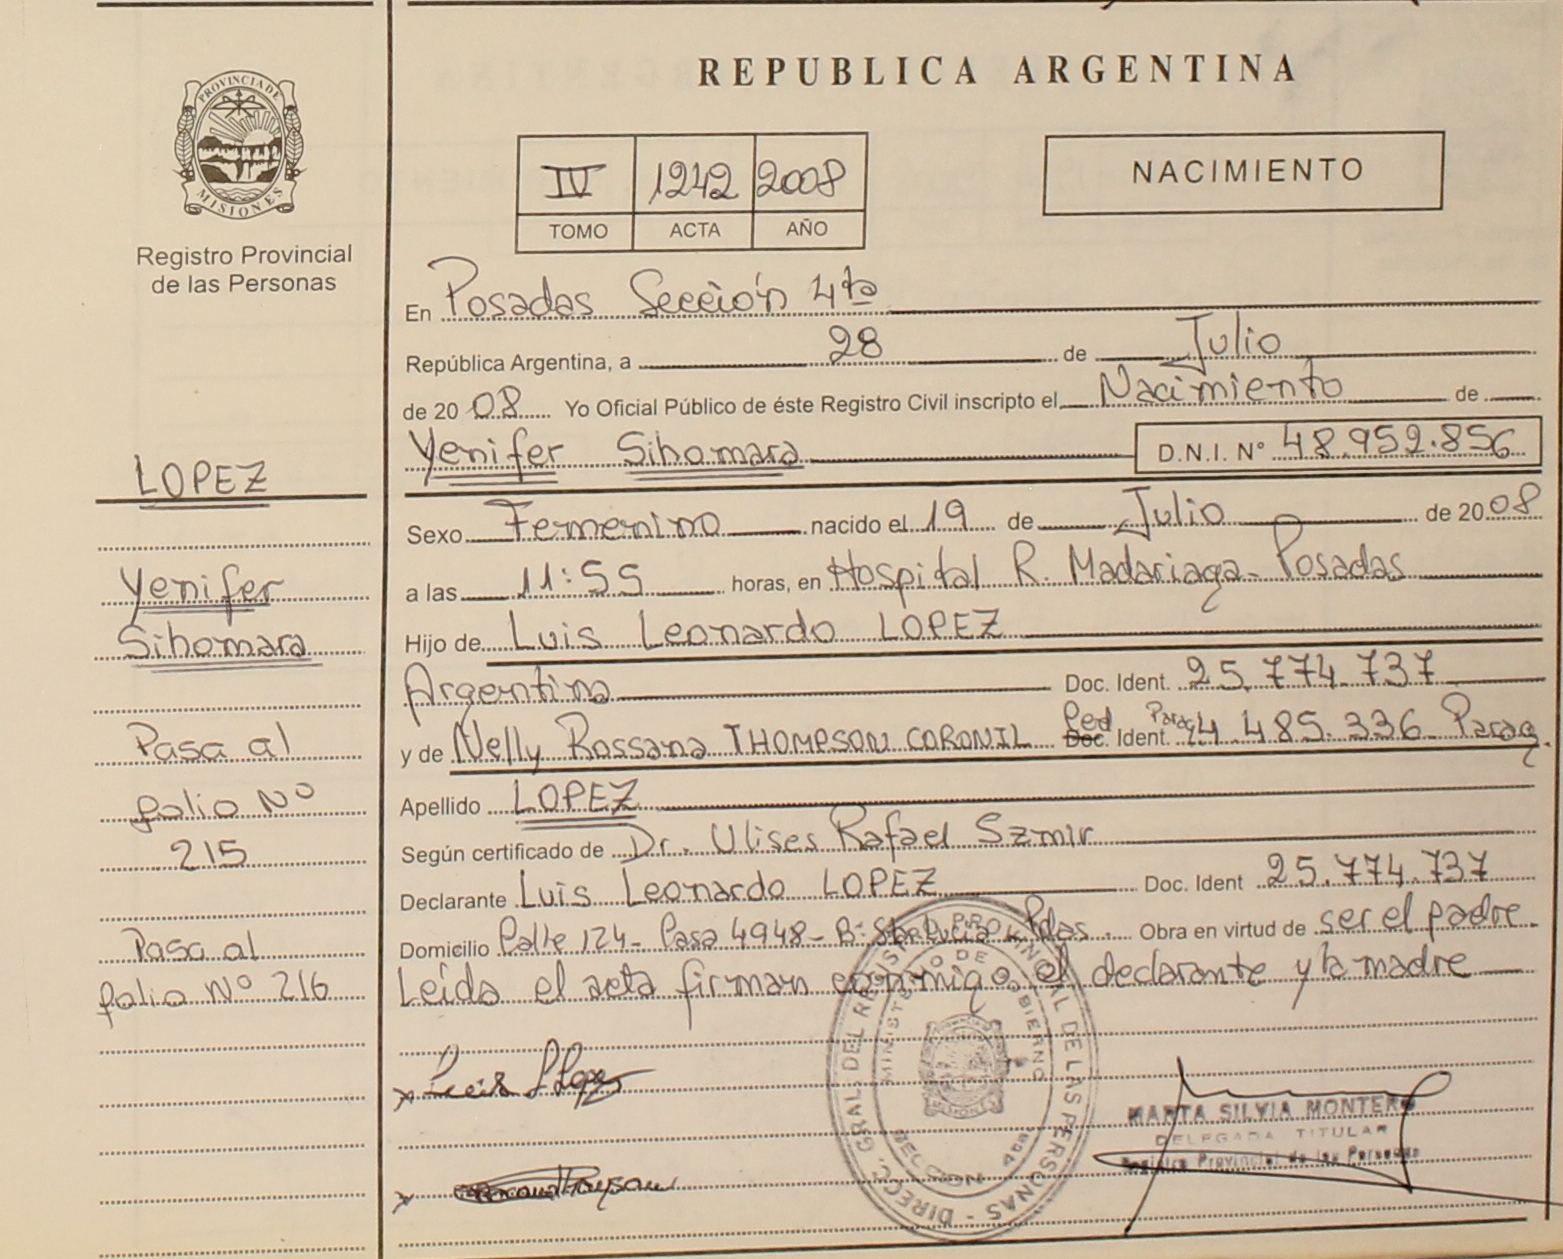 PROVINCIA DE
MISIONES
Registro Provincial
de las Personas
LOPEZ
Yenifer
Sihomara
Pasa al
folio Nº
215
Pasa al
folio Nº 216
REPUBLICA ARGENTINA
IV 1242 2008
TOMO ACTA AÑO
NACIMIENTO
En Posadas Sección 4ta
República Argentina, a 28 de Julio
de 2008 Yo Oficial Público de éste Registro Civil inscripto el Nacimiento de
Yenifer Sihomara D.N.I. Nº 48.952.856
Sexo Femenino nacido el 19 de Julio de 2008
a las 11:55 horas, en Hospital R. Madariaga - Posadas
Hijo de Luis Leonardo LOPEZ
Argentino Doc. Ident. 25.774.737
y de Nelly Rossana THOMPSON CORONIL Ced Doc. Ident. Parag 4.485.336 Parag.
Apellido LOPEZ
Según certificado de Dr. Ulises Rafael Szmir
Declarante Luis Leonardo LOPEZ Doc. Ident 25.774.737
Domicilio Calle 124 - Casa 4948 - Bº Sta Lucia - Pdas. Obra en virtud de ser el padre
Leída el acta firman conmigo, el declarante y la madre
DIRECC. GRAL. DEL REGISTRO PROVINCIAL DE LAS PERSONAS
MINISTERIO DE GOBIERNO
SECCION 4ta
MISIONES
Luis L Lopez
MARTA SILVIA MONTERO
DELEGADA TITULAR
Registro Provincial de las Personas